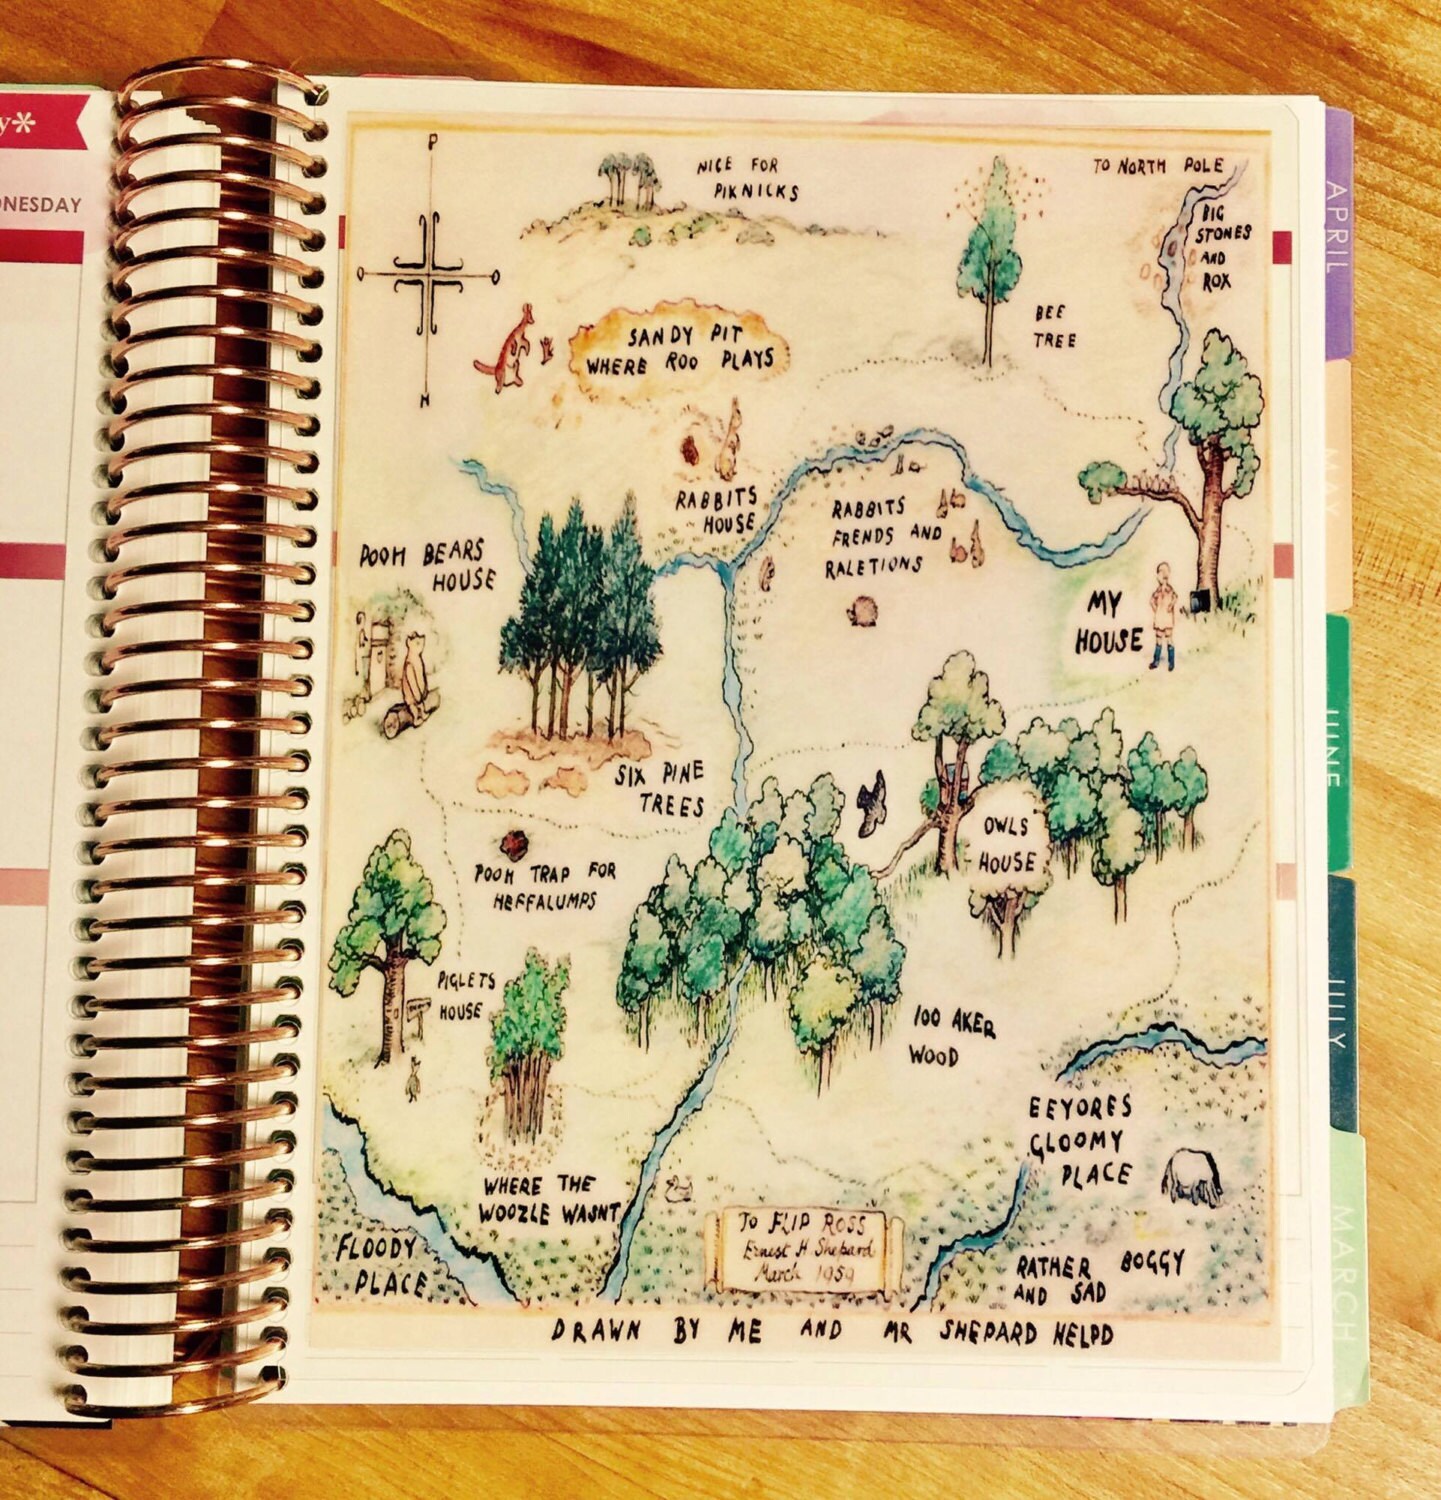 y*
NESDAY
P
O
O
H
NICE FOR
PIKNICKS
TO NORTH POLE
BIG
STONES
AND
ROX
BEE
TREE
SANDY PIT
WHERE ROO PLAYS
RABBITS
HOUSE
RABBITS
FRENDS AND
RALETIONS
POOH BEARS
HOUSE
MY
HOUSE
SIX PINE
TREES
OWLS
HOUSE
POOH TRAP FOR
HEFFALUMPS
PIGLETS
HOUSE
100 AKER
WOOD
EEYORES
GLOOMY
PLACE
WHERE THE
WOOZLE WASNT
FLOODY
PLACE
TO FLIP ROSS
Ernest H Shepard
March 1959
RATHER BOGGY
AND SAD
DRAWN BY ME AND MR SHEPARD HELPD
APRIL
MAY
JUNE
JULY
MARCH